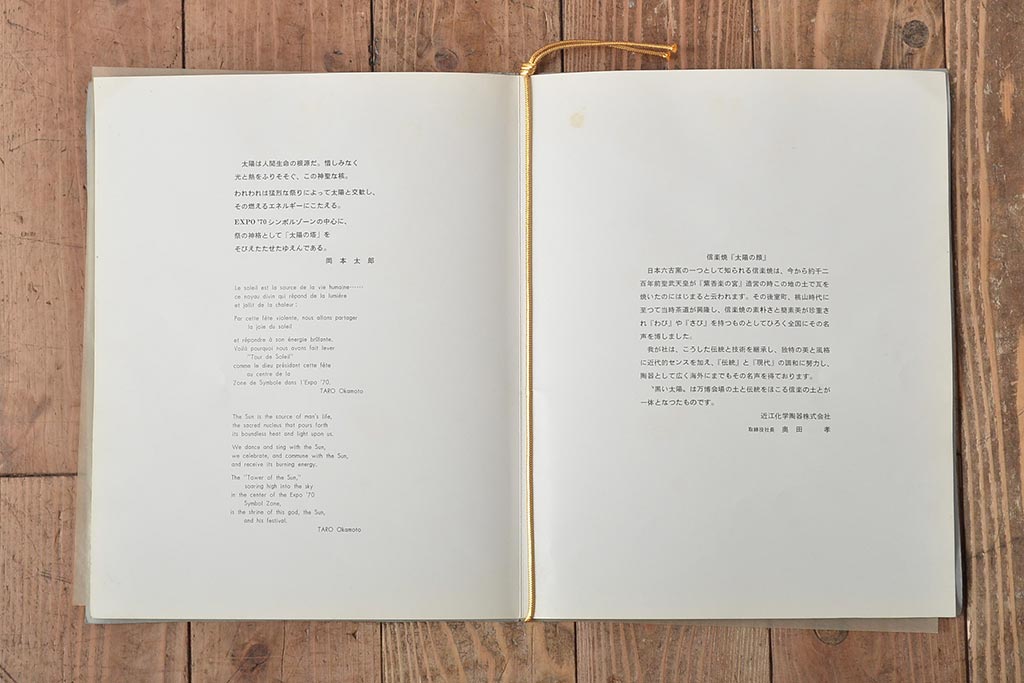 太陽は人間生命の根源だ。惜しみなく
光と熱をふりそそぐ、この神聖な核。
われわれは猛烈な祭りによって太陽と交歓し、
その燃えるエネルギーにこたえる。
EXPO '70 シンボルゾーンの中心に、
祭の神格として「太陽の塔」を
そびえたたせたゆえんである。
岡本太郎
Le soleil est la source de la vie humaine……
ce noyau divin qui répand de la lumière
et jaillit de la chaleur:
Par cette fête violente, nous allons partager
la joie du soleil
et répondre à son énergie brûlante.
Voilà pourquoi nous avons fait lever
"Tour de Soleil"
comme le dieu présidant cette fête
au centre de la
Zone de Symbole dans l'Expo '70.
TARO Okamoto
The Sun is the source of man's life,
the sacred nucleus that pours forth
its boundless heat and light upon us.
We dance and sing with the Sun,
we celebrate, and commune with the Sun,
and receive its burning energy.
The "Tower of the Sun,"
soaring high into the sky
in the center of the Expo '70
Symbol Zone,
is the shrine of this god, the Sun,
and his festival.
TARO Okamoto
信楽焼『太陽の顔』
日本六古窯の一つとして知られる信楽焼は、今から約千二
百年前聖武天皇が『紫香楽の宮』造営の時この地の土で瓦を
焼いたのにはじまると云われます。その後室町、桃山時代に
至つて当時茶道が興隆し、信楽焼の素朴さと簡素美が珍重さ
れ『わび』や『さび』を持つものとしてひろく全国にその名
声を博しました。
我が社は、こうした伝統と技術を継承し、独特の美と風格
に近代的センスを加え、『伝統』と『現代』の調和に努力し、
陶器として広く海外にまでもその名声を得ております。
〝黒い太陽〟は万博会場の土と伝統をほこる信楽の土とが
一体となつたものです。
近江化学陶器株式会社
取締役社長 奥田 孝